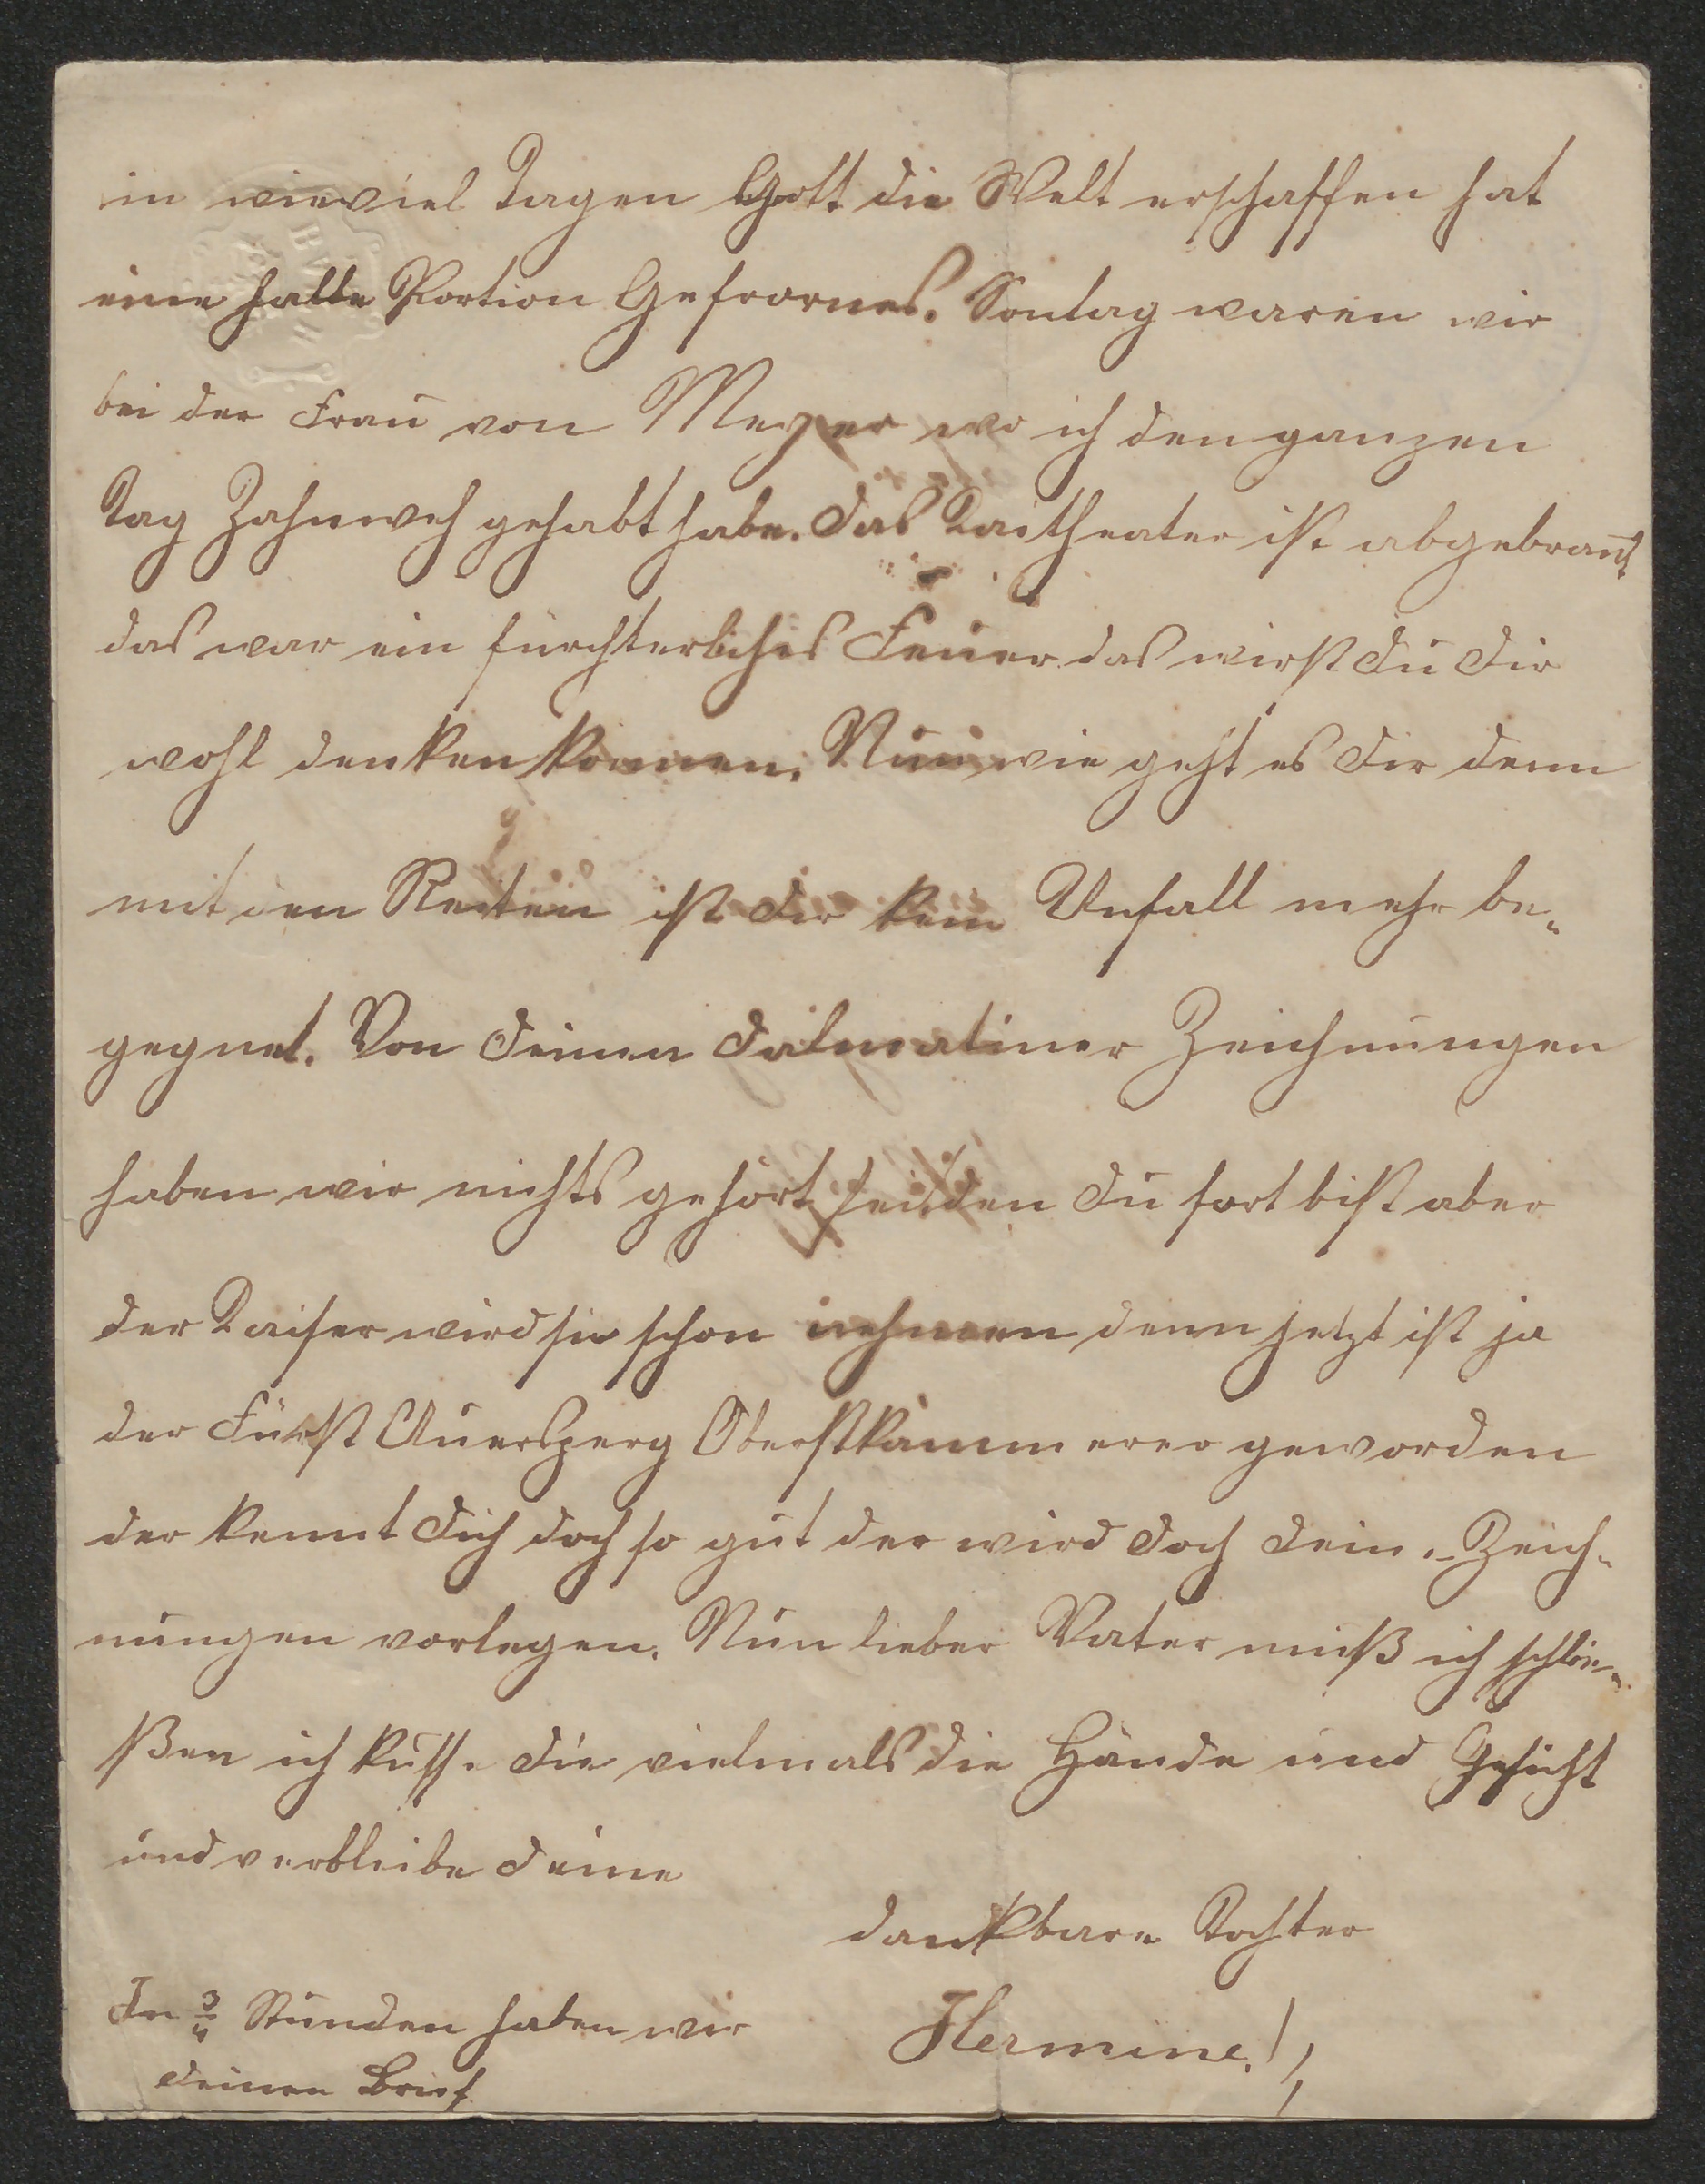 in wieviel Tagen Gott die Welt erschaffen hat
eine halbe Portion Gefrornes. Sontag waren wir
bei der Frau von Meyer wo ich den ganzen
Tag Zahnweh gehabt habe. Das Kaitheater ist abgebrant
das war ein fürchterliches Feuer das wirst Du Dir
wohl denken können. Nun wie geht es Dir denn
mit den Reiten ist Dir kein Unfall mehr be-
gegnet. Von Deinen Dalmatiner Zeichnungen
haben wir nichts gehört seitden Du fort bist aber
der Kaiser wird sie schon nehmen denn jetzt ist ja
der Fürst Auersperg Oberstkämmerer geworden
der kennt Dich doch so gut der wird doch Deine Zeich-
nungen vorlegen. Nun lieber Vater muß ich schlie-
ßen ich küsse Die vielmals die Hände und Gesicht
und verbleibe Deine
dankbare Tochter
Hermine!
In 3/4 Stunden haben wir
Deinen Brief